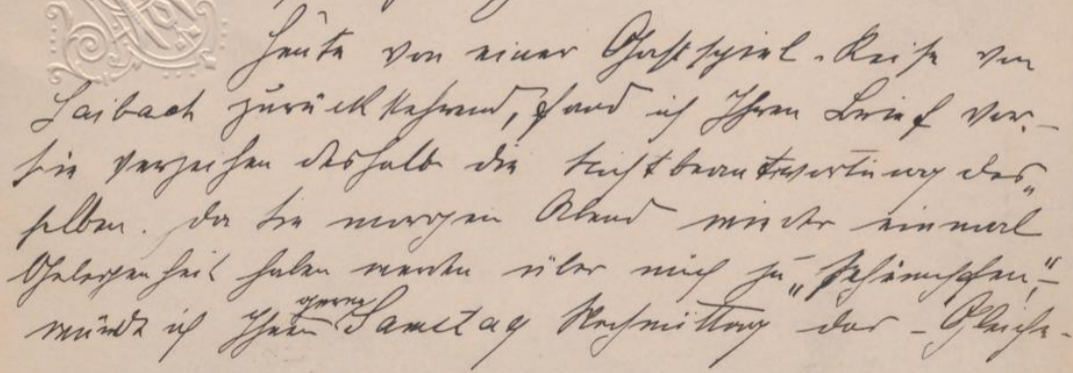 Heute von einer Gastspiel-Reise von
Laibach zurückkehrend, fand ich Ihren Brief vor. –
Sie verzeihen deshalb die Nichtbeantwortung des„
selben. Da Sie morgen Abend wieder einmal
Gelegenheit haben werden über mich zu „schimpfen“, –
würde ich Ihnen gerne Samstag Nachmittag das – Gleiche –